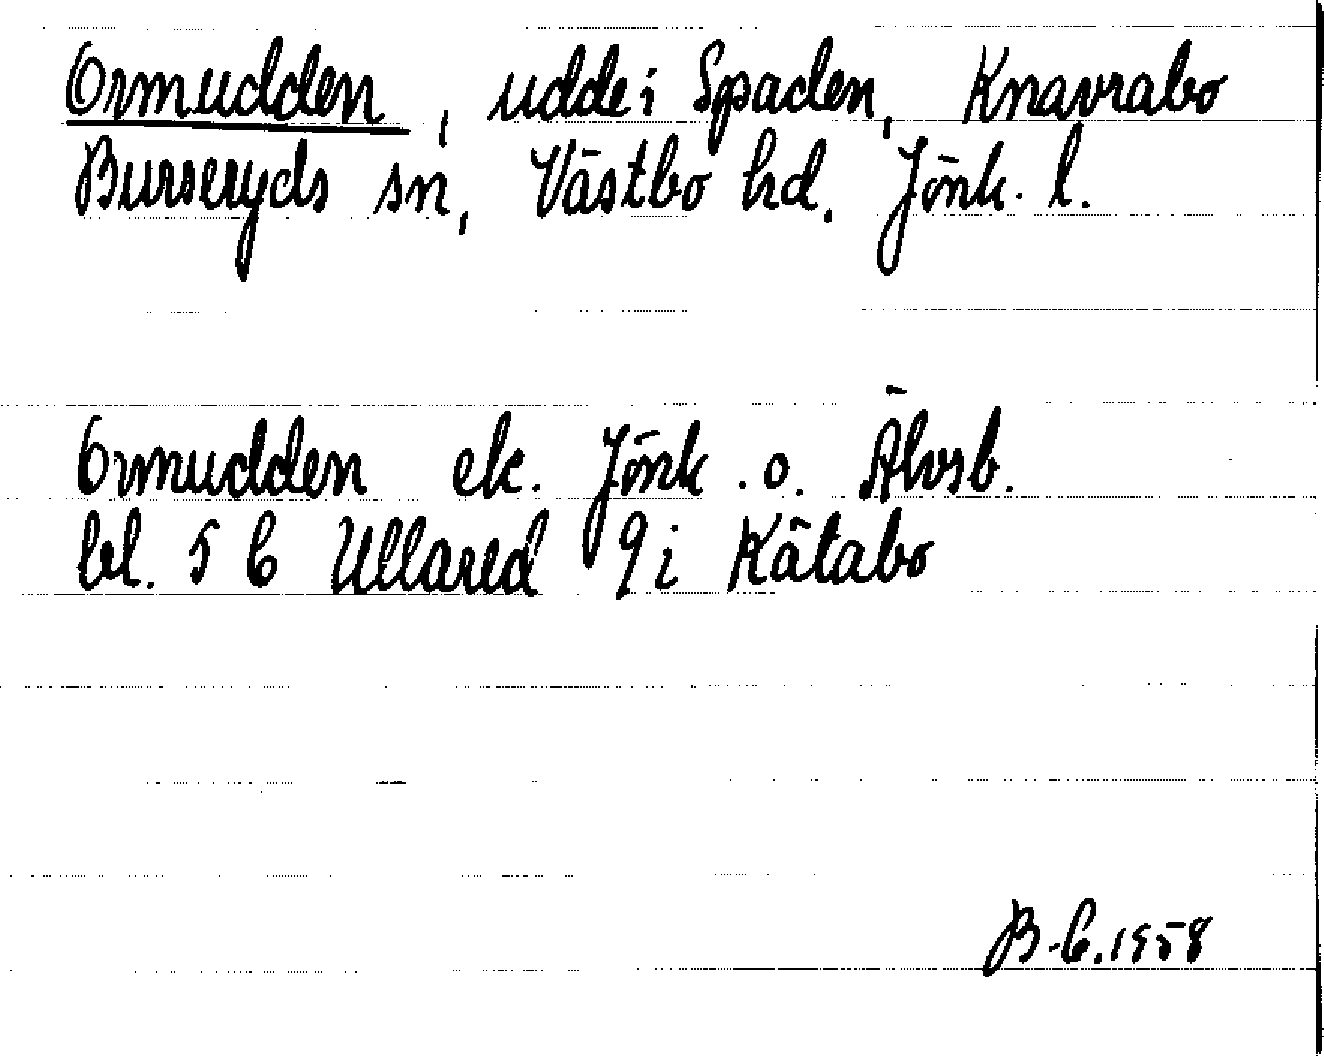 Ormudden, udde i Spaden, Knavrabo
Burseryds sn, Västbo hd. Jönk. l.
Ormudden ek. Jönk. o. Älvsb.
bl. 5 C Ullared 9 i Kåtabo
B-C. 1958